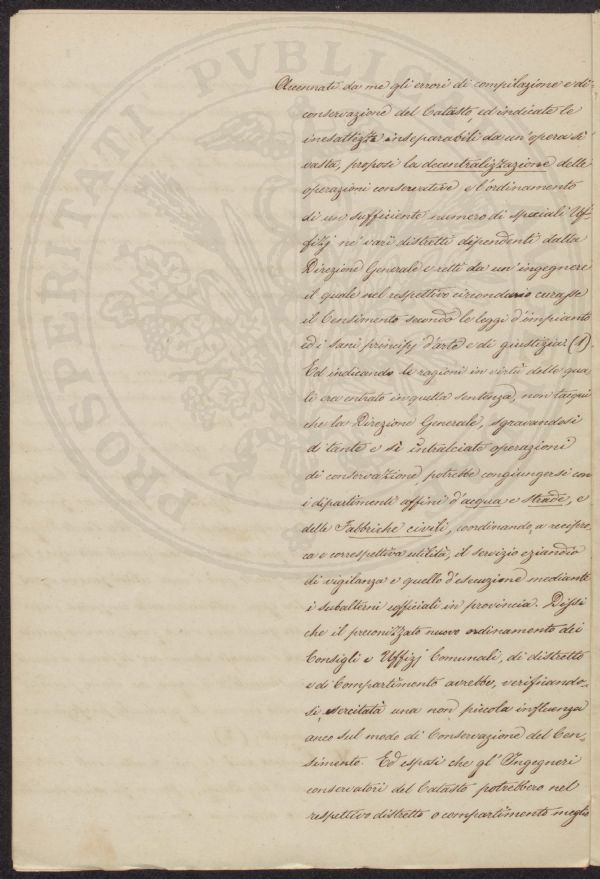 Accennati da me gli errori di compilazione e di
conservazione del Catasto, ed indicate le
inesattezze inseparabili da un'opera sì
vasta, proposi la decentralizzazione delle
operazioni conservative e l'ordinamento
di un sufficiente numero di speciali Uf-
fizj ne' varî distretti dipendenti dalla
Direzione Generale e retti da un ingegnere
il quale nel respettivo circondario curasse
il Censimento secondo le leggi d'impianto
ed i sani principj d'arte e di giustizia (1).
Ed indicando le ragioni in virtù delle qua
li era entrato in quella sentenza, non tacqui
che la Direzione Generale, sgravandosi
di tante e sì intralciate operazioni
di conservazione potrebbe congiungersi con
i dipartimenti affini d'acqua e strade, e
delle Fabbriche civili, coordinando, a recipro
ca e correspettiva utilità, il servizio eziandio
di vigilanza e quello d'esecuzione mediante
i subalterni uffiziali in provincia. Dissi
che il preconizzato nuovo ordinamento dei
Consigli e Uffizj Comunali, di distretto
e di Compartimento avrebbe, verificando-
si, esercitata una non piccola influenza
anco sul modo di Conservazione del Cen-
simento. Ed esposi che gl'Ingegneri
conservatori del Catasto potrebbero nel
respettivo distretto o compartimento meglio
PROSPERITATI PVBLIC